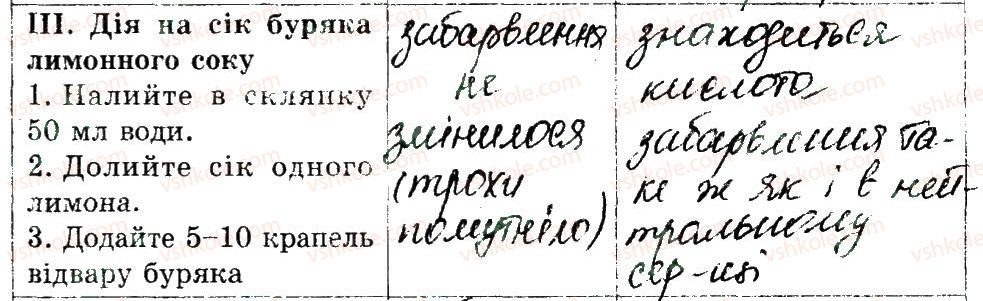 III. Дія на сік буряка
лимонного соку
1. Налийте в склянку
50 мл води.
2. Долийте сік одного
лимона.
3. Додайте 5–10 крапель
відвару буряка
забарвлення
не
змінилося
(трохи
помутніло)
знаходиться
кислота
забарвлення та-
ке ж як і в ней-
тральному
сер-щі